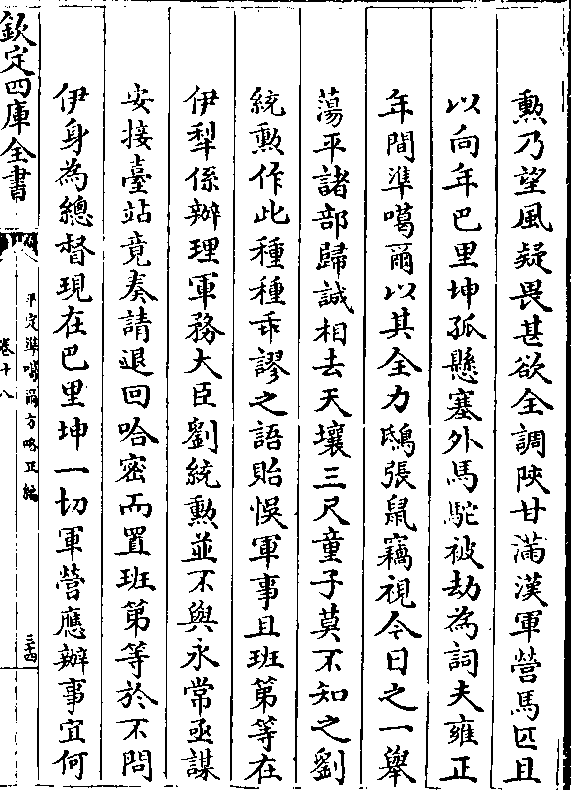 勲乃望風疑畏甚欲全調陜甘滿漢軍營馬匹且
以向年巴里坤孤懸塞外馬駝被劫為詞夫雍正
年間準噶爾以其全力鴟張鼠竊視今日之一舉
蕩平諸部歸誠相去天壤三尺童子莫不知之劉
統勲作此種種乖謬之語貽悞軍事且班第等在
伊犁係辦理軍務大臣劉統勲並不與永常亟謀
安接臺站竟奏請退回哈密而置班第等於不問
伊身為總督現在巴里坤一切軍營應辦事宜何
欽定四庫全書
平定準噶爾方略正編
卷十八
三十四